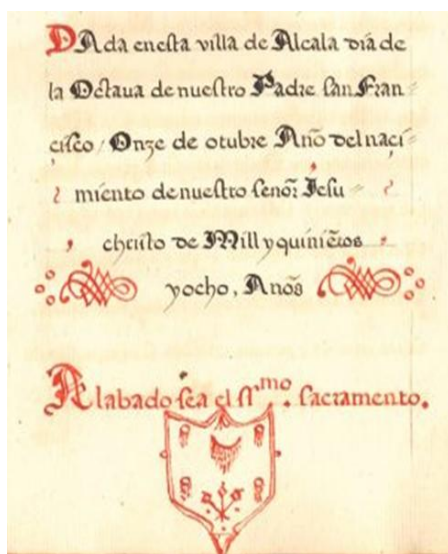 DAda enesta villa de Alcala día de
la Octaua de nuestro Padre san Fran=
cisco / Onze de otubre Año del naçi=
miento de nuestro señor Jesu=
christo de Mill y quiniẽtos
y ocho, Años
Alabado sea el st.mo sacramento.